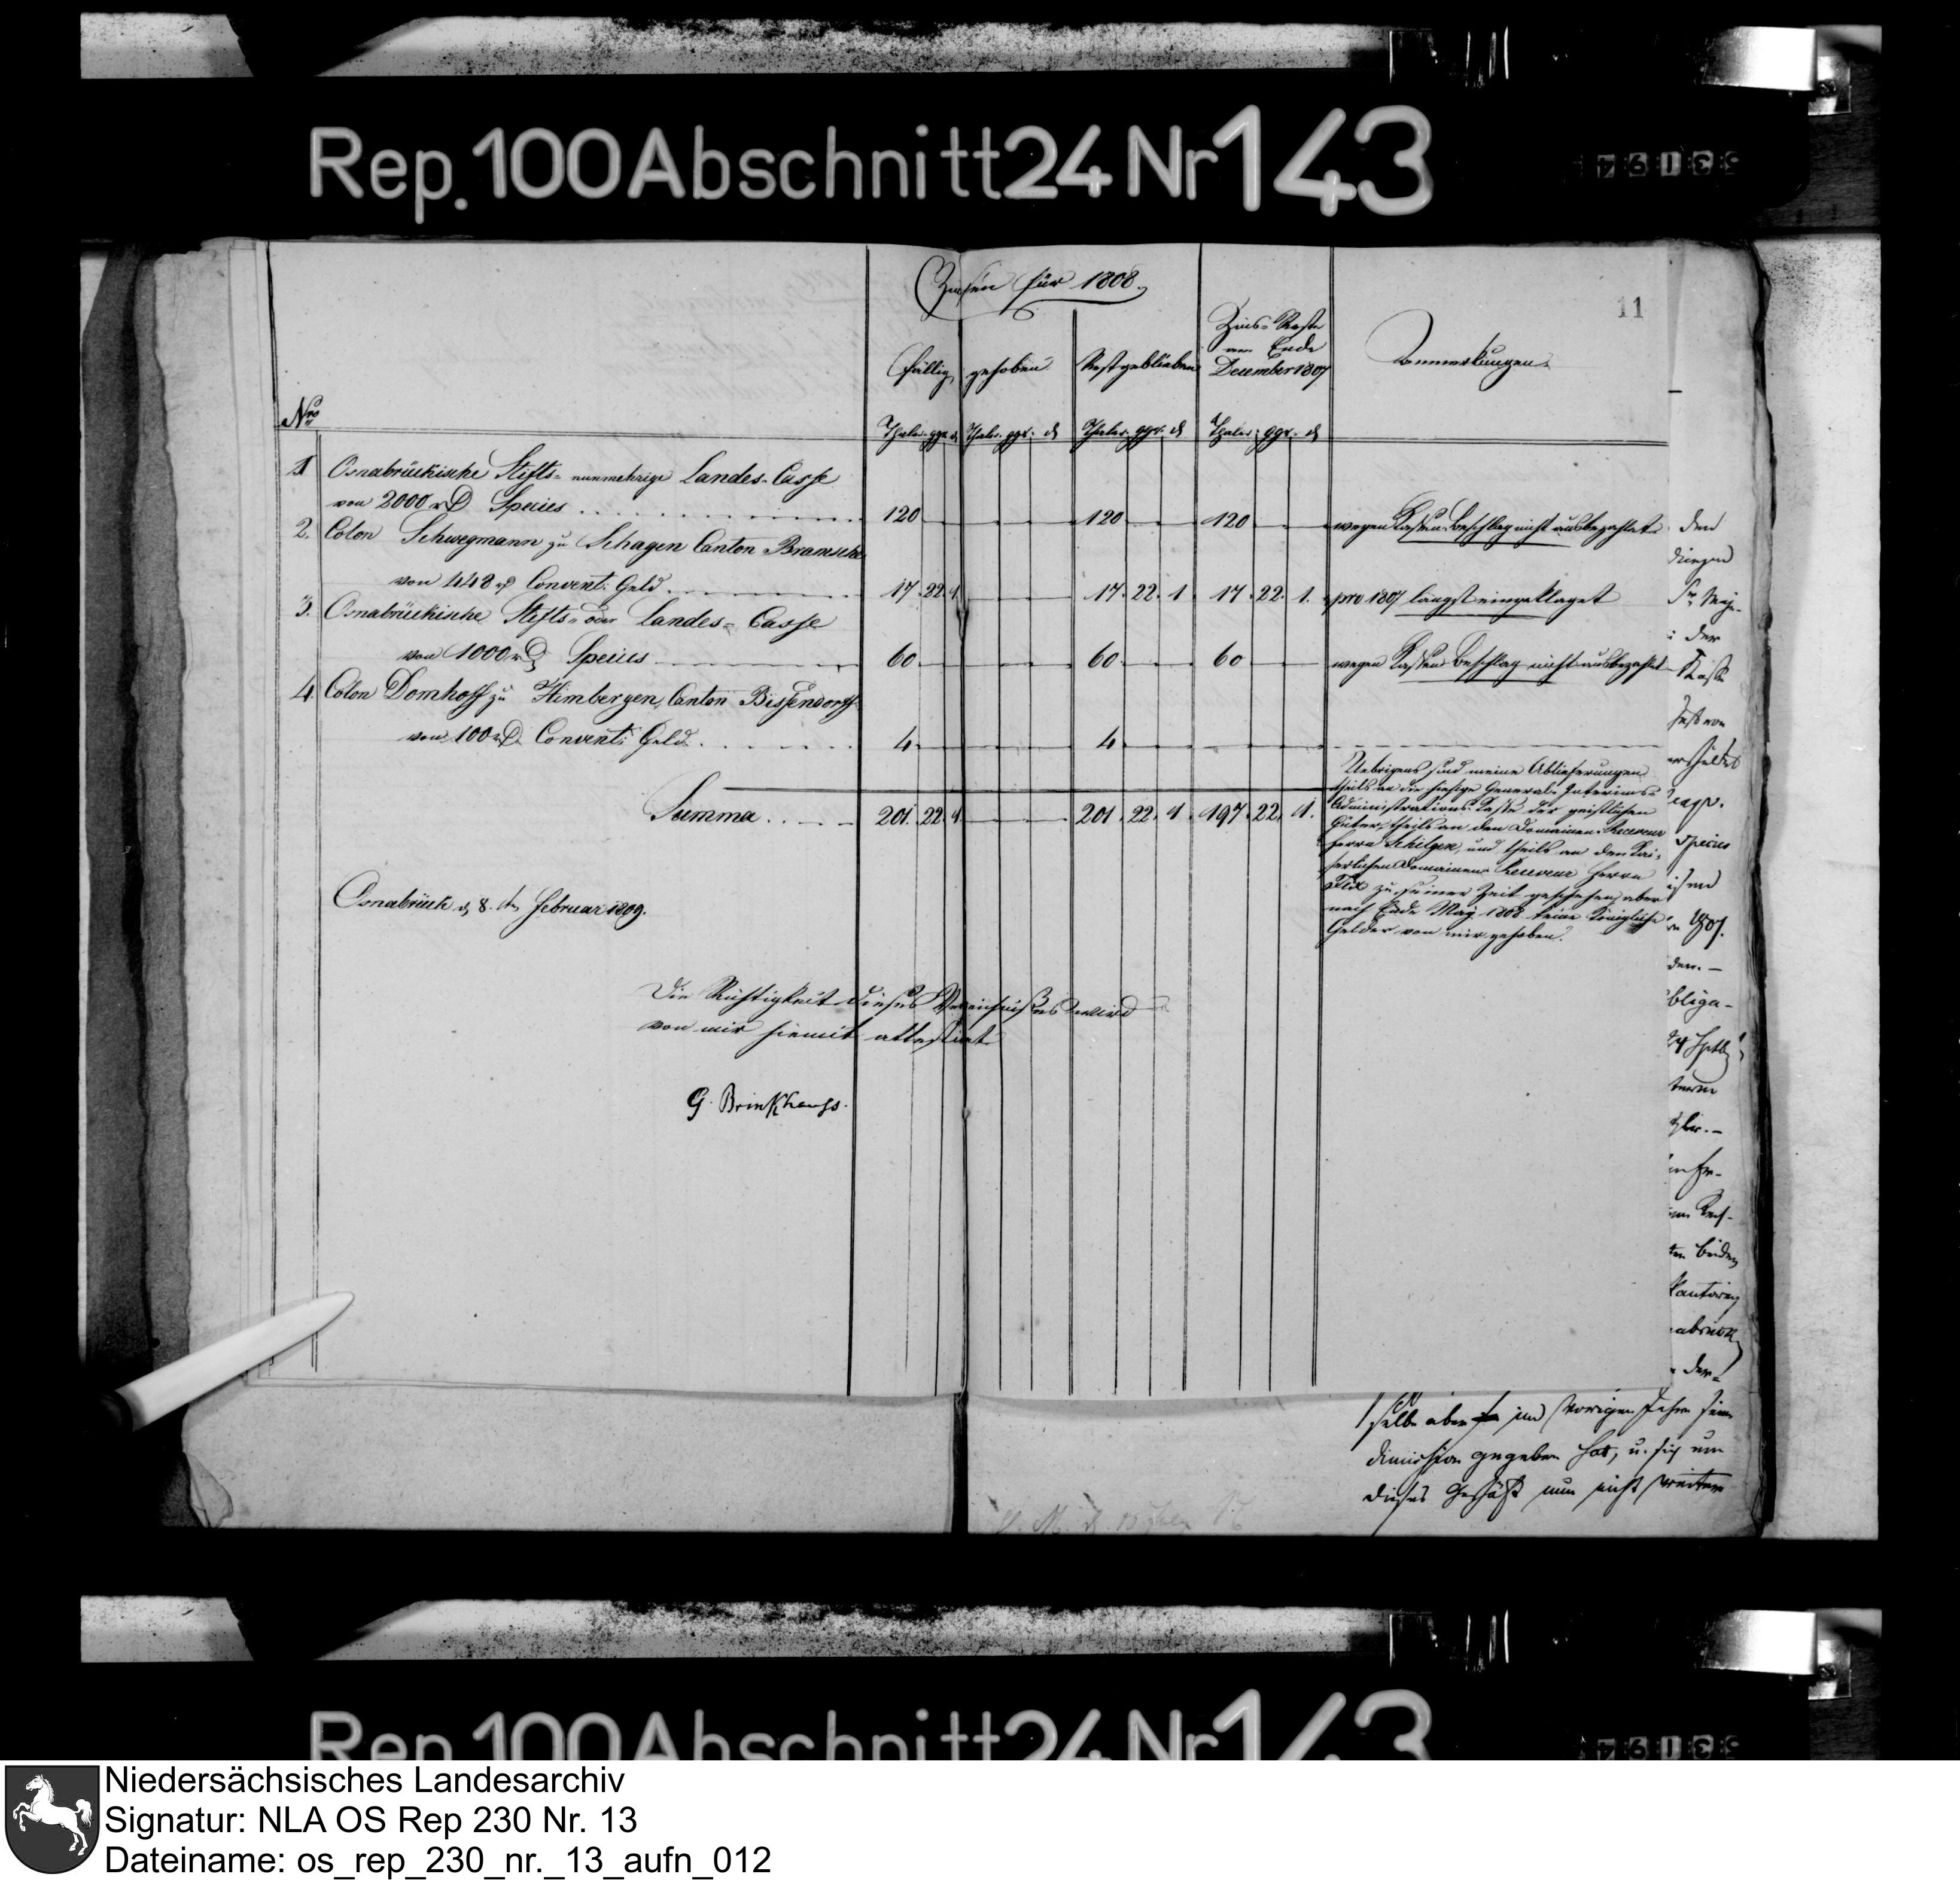 Rep. 100 Abschnitt 24 Nr 143
53194
11
Zinsen für 1808.
Nro
fällig
gehoben
Restgeblieben
Zins-Reste
am Ende
December 1807
Anmerkungen.
Thaler. ggr. d
Thaler. ggr. d
Thaler. ggr. d
Thaler. ggr. d
1 Osnabrückische Stifts- nunmehrige Landes-Casse
von 2000 rD Species 120 120 120 wegen Kassen Beschlag nicht ausbezahlet
2. Colon Schwegmann zu Schagen Canton Bramsche
von 448 rD Convent: Geld 17. 22. 1. 17. 22. 1 17. 22. 1. pro 1807 längst eingeklaget
3. Osnabrückische Stifts- oder Landes-Casse
von 1000 rD Species 60 60 60 wegen Kassen Beschlag nicht ausbezahlt
4 Colon Domhoff zu Himbergen, Canton Bissendorff
von 100 rD Convent: Geld 4 4
Summa 201. 22. 1 201. 22. 1 197. 22. 1.
Uebrigens sind meine Ablieferungen
theils an die hiesige General-Interims-
Administrations-Kasse der geistlichen
Güter, theils an den Domainen-Receveur
Herrn Schilgen, und theils an den Kai-
serlichen Domainen Receveur Herrn
Flix zu seiner Zeit geschehen, aber
nach Ende May 1808 keine Königliche
Gelder von mir gehoben.
Osnabrück d. 8. ten Februar 1809.
Die Richtigkeit dieses Verzeichnißes wird
von mir hiemit attestirt
G. Brinkhauss.
den
der
Species
1807.
den.
bliga-
beiden
abrück
der-
selbe aber im vorigen Jahre seine
dimission gegeben hat, u. sich um
dieses Geschäft nun nicht weiter
Rep. 100 Abschnitt 24 Nr 143
53194
Niedersächsisches Landesarchiv
Signatur: NLA OS Rep 230 Nr. 13
Dateiname: os_rep_230_nr._13_aufn_012